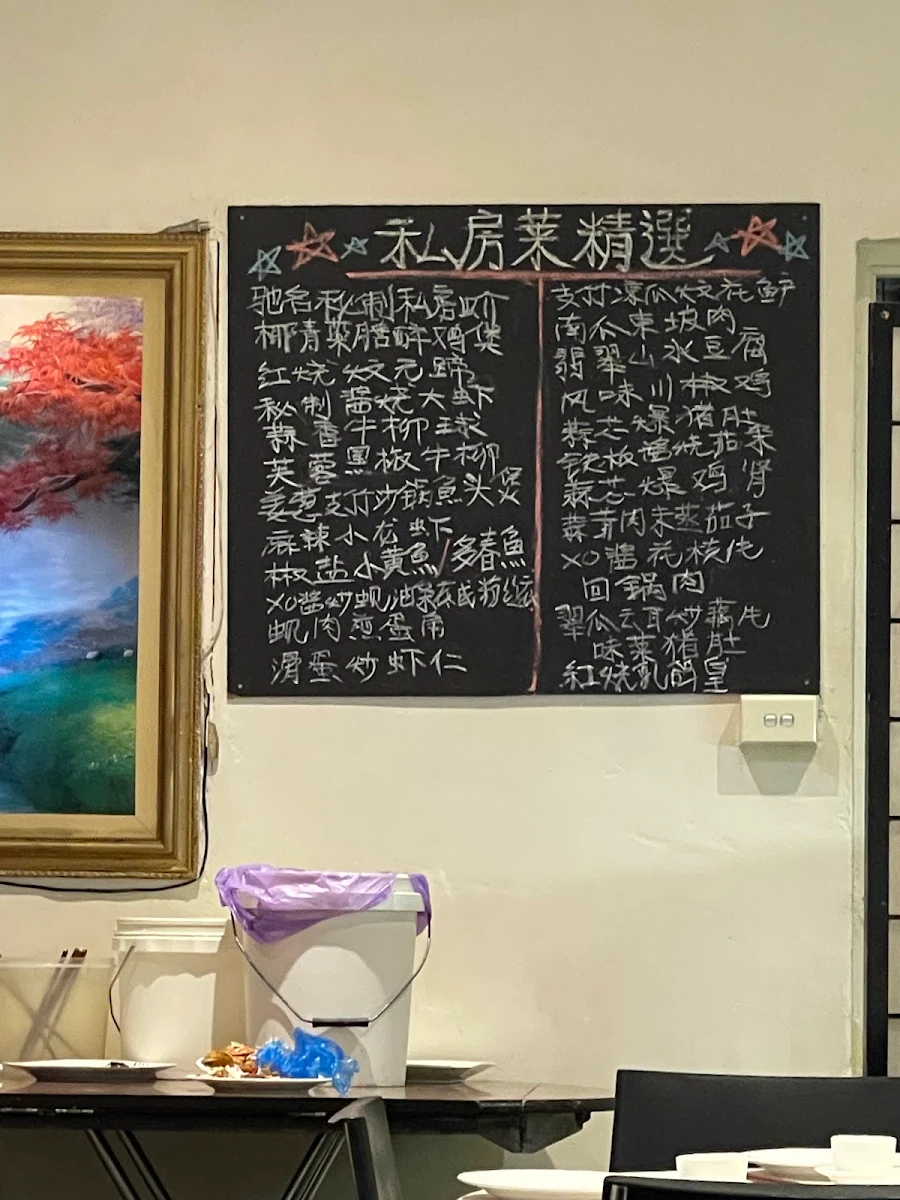 私房菜精選
驰名秘制私房虾
椰青菜膽醉鸡煲
红烧炆元蹄
秘制醬烧大虾
蒜香牛柳球
芙蓉黑椒牛柳
姜蔥支竹沙鍋魚头煲
麻辣小龙虾
椒盐小黄魚/多春魚
XO醬炒蚬油菜底或粉丝底
蚬肉煎蛋角
滑蛋炒虾仁
支竹凉瓜炆花魚
南瓜東坡肉
翡翠山水豆腐
风味川椒鸡
蒜芯爆猪肚
铁板醬烧茄条
蒜芯爆鸡肾
蒜茸肉末蒸茄子
XO醬花枝片
回鍋肉
翠瓜云耳炒藕片
味菜猪肚
紅烧乳鸽皇